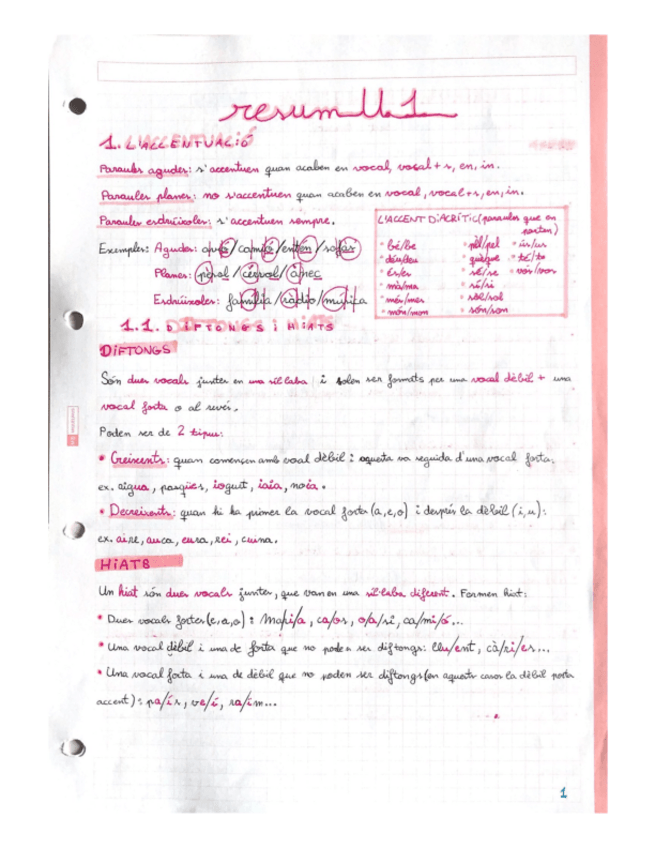 resum U.1
1. L'ACCENTUACIÓ
Paraules agudes: s'accentuen quan acaben en vocal, vocal + s, en, in.
Paraules planes: no s'accentuen quan acaben en vocal, vocal + s, en, in.
Paraules esdrúixoles: s'accentuen sempre.
Exemples: Agudes: /camió/entén/sofàs
Planes: /cérvol/ànec
Esdrúixoles: família/ràdio/música
L'ACCENT DiACRÍTiC (paraules que en
porten)
• bé/be • pèl/pel • ús/us
• déu/deu • què/que • té/te
• és/es • sé/se • vós/vos
• mà/ma • sí/si
• més/mes • sòl/sol
• món/mon • són/son
1.1. DIFTONGS i HiATS
DiFTONGS
Són dues vocals juntes en una síl·laba i solen ser formats per una vocal dèbil + una
vocal forta o al revés.
Poden ser de 2 tipus:
• Creixents: quan comencen amb vocal dèbil i aquesta va seguida d'una vocal forta.
ex. aigua, pasqües, iogurt, iaia, noia.
• Decreixents: quan hi ha primer la vocal forta (a, e, o) i després la dèbil (i, u):
ex. aire, auca, eura, rei, cuina.
HiATS
Un hiat són dues vocals juntes, que van en una síl·laba diferent. Formen hiat:
• Dues vocals fortes (e, a, o): Mari/a, ca/os, o/a/si, ca/mi/ó...
• Una vocal dèbil i una de forta que no poden ser diftongs: llu/ent, cà/ri/es...
• Una vocal forta i una de dèbil que no poden ser diftongs (en aquests casos la dèbil porta
accent): pa/ís, ve/í, ra/ïm...
1